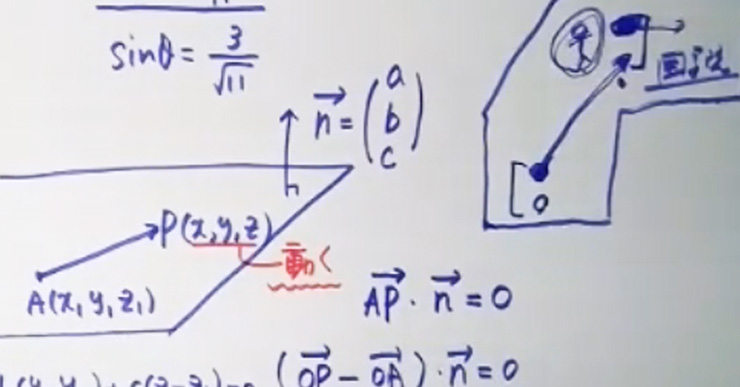 sinθ = 3/√11
n⃗ = (a b c)
P(x,y,z)
動く
A(x₁ y₁ z₁)
O
AP⃗ · n⃗ = 0
(OP⃗ − OA⃗) · n⃗ = 0